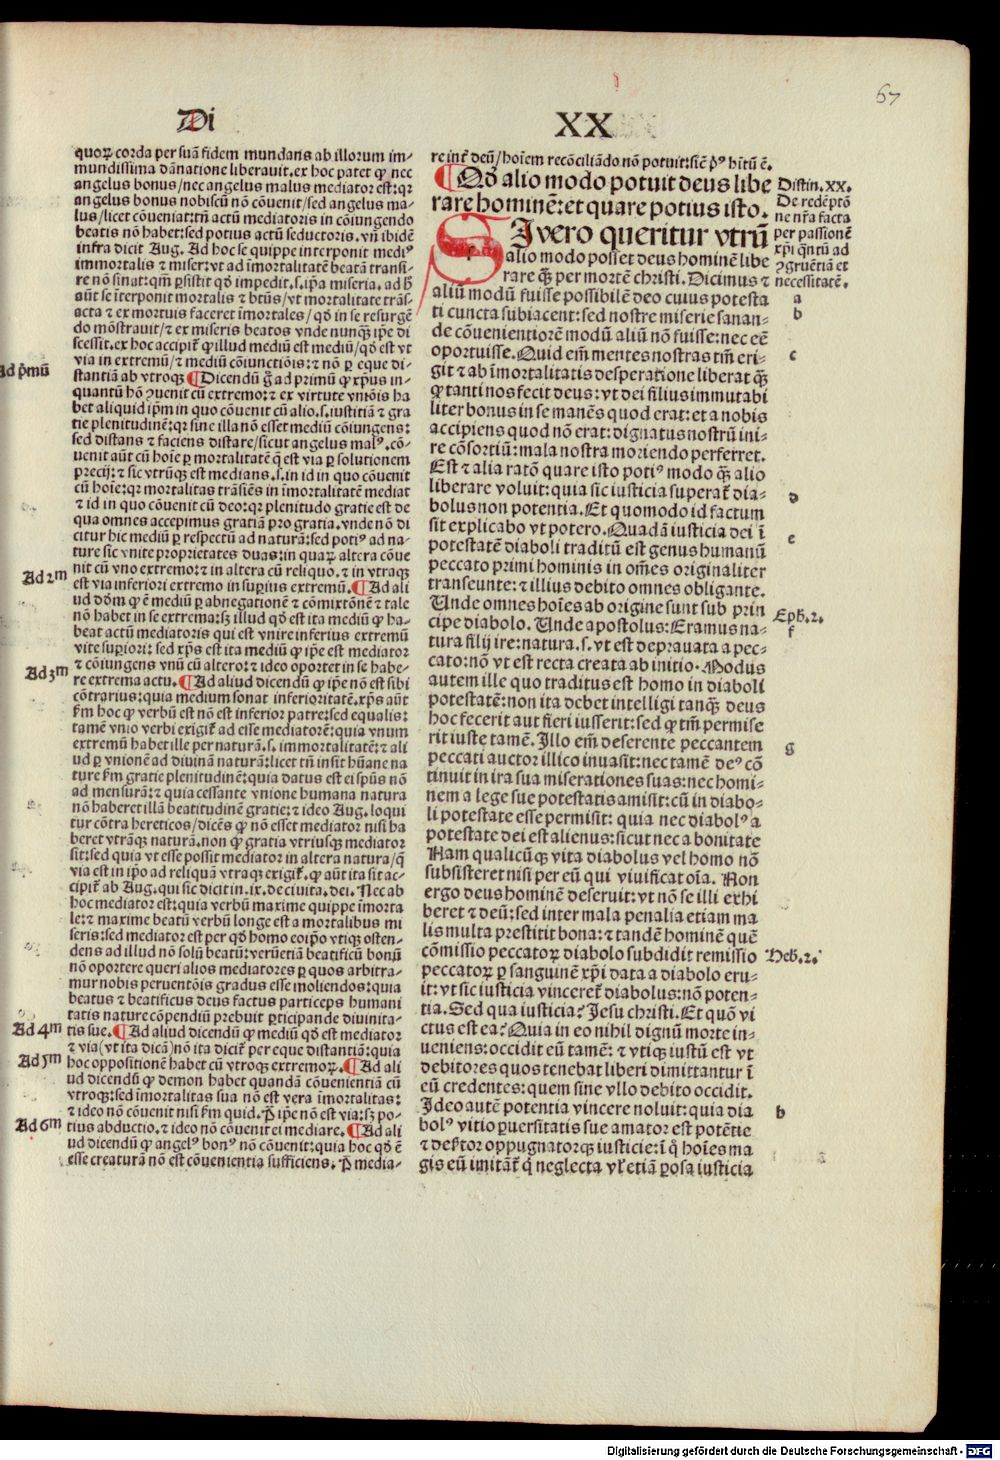 67
Di
XX
quoꝝ corda per suā fidem mundans ab illorum im-
mundissima dānatione liberauit. ex hoc patet ꝙ nec
angelus bonus/nec angelus malus mediator est: qꝛ
angelus bonus nobiscū non cōuenit/sed angelus ma-
lus/licet cōueniat: tn̄ actū mediatoris in cōiungendo
beatis nō habet: sed potius actū seductoris. vn̄ ibidē
infra dicit Aug. Ad hoc se quippe interponit mediꝰ
immortalis ⁊ miser: vt ad īmortalitatē beatā transi-
re nō sinat: qm̄ ꝑsistit qd̄ impedit. s. ip̄a miseria. ad h̄
aūt se īterponit mortalis ⁊ btūs/vt mortalitate trās-
acta ⁊ ex mortuis faceret īmortales/qd̄ in se resurgē
do mōstrauit/⁊ ex miseris beatos vnde nunqꝫ ip̄e di
scessit. ex hoc accipit̄ ꝙ illud mediū est mediū/qd̄ est vt
via in extremū/⁊ mediū cōiunctiōis: ⁊ nō ꝑ eque di-
stantiā ab vtroqꝫ ¶ Dicendū g̊ ad primū ꝙ xp̄us in-
quantū hō ꝯuenit cū extremo: ⁊ ex virtute vniōis ha
bet aliquid ip̄m in quo cōuenit cū alio. s. iustitiā ⁊ gra
tie plenitudinē: qꝛ sine illa nō esset mediū cōiungens:
sed distans ⁊ faciens distare/sicut angelus malꝰ. cō-
uenit aūt cū hoīe ꝑ mortalitatē q̄ est via ꝑ solutionem
precij: ⁊ sic vtrūqꝫ est medians. s. in id in quo cōuenit
cū hoīe: qꝛ mortalitas trāsiēs in īmortalitatē mediat
⁊ id in quo cōuenit cū deo: qꝛ plenitudo gratie est de
qua omnes accepimus gratiā pro gratia. vnde nō di
citur hic mediū ꝑ respectū ad naturā: sed potiꝰ ad na-
ture sic vnite proprietates duas: in quaꝝ altera cōue
nit cū vno extremo: ⁊ in altera cū reliquo. ⁊ in vtraqꝫ
est via inferiori extremo in supius extremū. ¶ Ad ali
ud dōm ꝙ ē mediū ꝑ abnegationē ⁊ cōmixtōnē ⁊ tale
nō habet in se extrema: sꝫ illud qd̄ est ita mediū ꝙ ha-
beat actū mediatoris qui est vnire inferius extremū
vite supiori: sed xp̄s est ita mediū ꝙ ip̄e est mediator
⁊ cōiungens vnū cū altero: ⁊ ideo oportet in se habe-
re extrema actu. ¶ Ad aliud dicendū ꝙ ip̄e nō est sibi
cōtrarius: quia medium sonat inferioritatē. xp̄s aūt
km̄ hoc ꝙ verbū est nō est inferior patre: sed equalis:
tamē vnio verbi exigit̄ ad esse mediatorē: quia vnum
extremū habet ille per naturā. s. immortalitatē: ⁊ ali
ud ꝑ vnionē ad diuinā naturā: licet tn̄ insit hūane na
ture km̄ gratie plenitudinē: quia datus est ei spūs nō
ad mensurā: ⁊ quia cessante vnione humana natura
nō haberet illā beatitudinē gratie: ⁊ ideo Aug. loqui
tur cōtra hereticos/dicēs ꝙ nō esset mediator nisi ha
beret vtrāqꝫ naturā. non ꝙ gratia vtriusqꝫ mediator
sit: sed quia vt esse possit mediator in altera natura/q̄
via est in ip̄o ad reliquā vtraqꝫ exigit̄. ꝙ aūt ita sit ac-
cipit̄ ab Aug. qui sic dicit in. ix. de ciuita. dei. Nec ab
hoc mediator est: quia verbū maxime quippe īmorta
le: ⁊ maxime beatū verbū longe est a mortalibus mi
seris: sed mediator est per qd̄ homo eoip̄o vtiqꝫ osten-
dens ad illud nō solū beatū: verūetiā beatificū bonū
nō oportere queri alios mediatores ꝑ quos arbitra-
mur nobis peruentōis gradus esse moliendos: quia
beatus ⁊ beatificus deus factus particeps humani
tatis nature cōpendiū prebuit ꝑticipande diuinita-
tis sue. ¶ Ad aliud dicendū ꝙ mediū qd̄ est mediator
⁊ via (vt ita dicā) nō ita dicit̄ per eque distantiā: quia
hoc oppositionē habet cū vtroqꝫ extremoꝝ. ¶ Ad ali
ud dicendū ꝙ demon habet quandā cōuenientiā cū
vtroqꝫ: sed īmortalitas sua nō est vera īmortalitas:
⁊ ideo nō cōuenit nisi km̄ quid. Ꝓ ip̄e nō est via: sꝫ po-
tius abductio. ⁊ ideo nō cōuenit ei mediare. ¶ Ad ali
ud dicendū ꝙ angelꝰ bonꝰ nō cōuenit: quia hoc qd̄ ē
esse creaturā nō est cōuenientia sufficiens. Ꝓ media-
Ad pͥmū
Ad 2m
Ad 3m
Ad 4m
Ad 5m
Ad 6m
re int̄ deū/hoīem recōciliādo nō potuit: siē pͥꝰ hītū ē.
¶ Qd̄ alio modo potuit deus libe
rare hominē: et quare potius isto.
SI vero queritur vtrū
alio modo posset deus hominē libe
rare qꝫ per mortē christi. Dicimus ⁊
aliū modū fuisse possibilē deo cuius potesta
ti cuncta subiacent: sed nostre miserie sanan-
de cōuenientiorē modū aliū nō fuisse: nec eē
oportuisse. Quid em̄ mentes nostras tm̄ eri-
git ⁊ ab īmortalitatis desperatione liberat qꝫ
ꝙ tanti nos fecit deus: vt dei filius immutabi
liter bonus in se manēs quod erat: et a nobis
accipiens quod nō erat: dignatus nostrū ini-
re cōsortiū: mala nostra moriendo perferret.
Est ⁊ alia ratō quare isto potiꝰ modo qꝫ alio
liberare voluit: quia sic iusticia superat̄ dia-
bolus non potentia. Et quomodo id factum
sit explicabo vt potero. Quadā iusticia dei ī
potestatē diaboli traditū est genus humanū
peccato primi hominis in om̄es originaliter
transeunte: ⁊ illius debito omnes obligante.
Unde omnes hoīes ab origine sunt sub prin
cipe diabolo. Unde apostolus: Eramus na-
tura filij ire: natura. s. vt est deprauata a pec-
cato: nō vt est recta creata ab initio. Modus
autem ille quo traditus est homo in diaboli
potestatē: non ita debet intelligi tanqꝫ deus
hoc fecerit aut fieri iusserit: sed ꝙ tm̄ permise
rit iuste tamē. Illo em̄ deserente peccantem
peccati auctor illico inuasit: nec tamē deꝰ cō
tinuit in ira sua miserationes suas: nec homi-
nem a lege sue potestatis amisit: cū in diabo-
li potestate esse permisit: quia nec diabolꝰ a
potestate dei est alienus: sicut nec a bonitate
Nam qualicūqꝫ vita diabolus vel homo nō
subsisteret nisi per eū qui viuificat oīa. Non
ergo deus hominē deseruit: vt nō se illi exhi
beret ⁊ deū: sed inter mala penalia etiam ma
lis multa prestitit bona: ⁊ tandē hominē quē
cōmissio peccatoꝝ diabolo subdidit remissio
peccatoꝝ ꝑ sanguinē xp̄i data a diabolo eru-
it: vt sic iusticia vinceret̄ diabolus: nō poten-
tia. Sed qua iusticia? Jesu christi. Et quō vi
ctus est ea? Quia in eo nihil dignū morte in-
ueniens: occidit eū tamē: ⁊ vtiqꝫ iustū est vt
debitores quos tenebat liberi dimittantur ī
eū credentes: quem sine vllo debito occidit.
Ideo autē potentia vincere noluit: quia dia
bolꝰ vitio ꝑuersitatis sue amator est potētie
⁊ desertor oppugnatorqꝫ iusticie: ī q̊ hoīes ma
gis eū imitāt̄ q̊ neglecta vl̓ etiā ꝑosa iusticia
Distin. XX.
De redēptō
ne nr̄a facta
per passionē
xp̄i qn̄tū ad
ꝯgruētiā et
necessitatē.
a
b
c
d
e
Eph. 2.
f
g
Heb. 2.
h
Digitalisierung gefördert durch die Deutsche Forschungsgemeinschaft - DFG